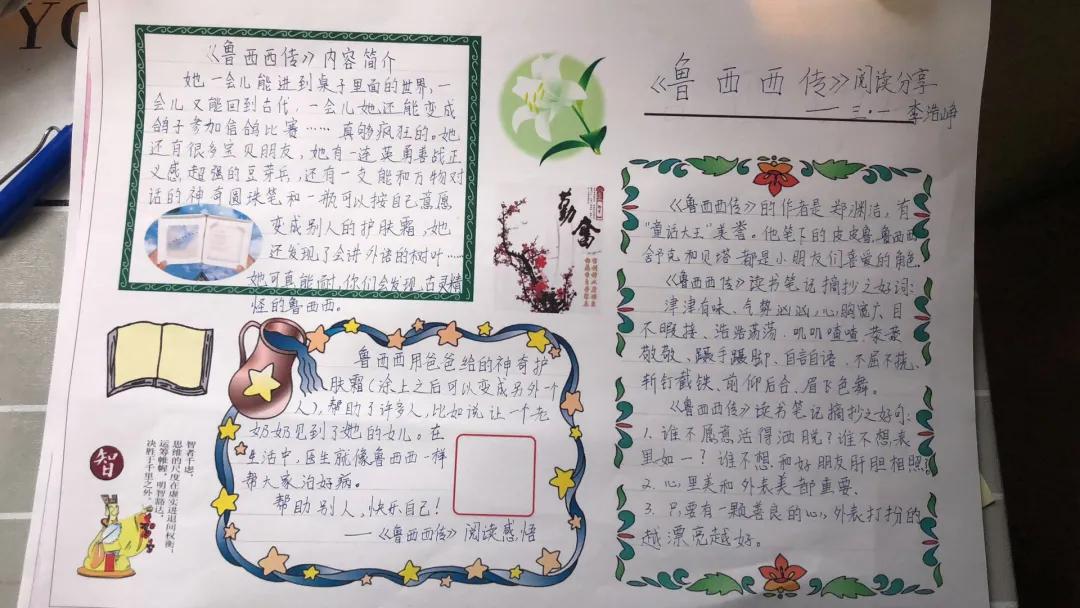 《鲁西西传》阅读分享
——三·一 李浩峥
《鲁西西传》内容简介
她一会儿能进到桌子里面的世界,一
会儿又能回到古代,一会儿她还能变成
鸽子参加信鸽比赛……真够疯狂的。她
还有很多宝贝朋友,她有一连英勇善战正
义感超强的豆芽兵,还有一支能和万物对
话的神奇圆珠笔和一瓶可以按自己意愿
变成别人的护肤霜,她
还发现了会讲外语的树叶……
她可真能耐,你们会发现古灵精
怪的鲁西西。
勤奋
鲁西西用爸爸给的神奇护
肤霜(涂上之后可以变成另外一个
人),帮助了许多人,比如说让一个老
奶奶见到了她的女儿。在
生活中,医生就像鲁西西一样
帮大家治好病。
帮助别人,快乐自己!
——《鲁西西传》阅读感悟
智
智者千虑,
思维的尺度在虚实进退间权衡,
运筹帷幄,明智豁达,
决胜于千里之外。
《鲁西西传》的作者是郑渊洁,有
“童话大王”美誉。他笔下的皮皮鲁、鲁西西
舒克和贝塔都是小朋友们喜爱的角色。
《鲁西西传》读书笔记摘抄之好词:
津津有味、气势汹汹、心胸宽广、目
不暇接、浩浩荡荡、叽叽喳喳、恭恭
敬敬、蹑手蹑脚、自言自语、不屈不挠、
斩钉截铁、前仰后合、眉飞色舞。
《鲁西西传》读书笔记摘抄之好句:
1. 谁不愿意活得洒脱?谁不想表
里如一?谁不想和好朋友肝胆相照?
2. 心里美和外表美都重要。
3. 只要有一颗善良的心,外表打扮的
越漂亮越好。